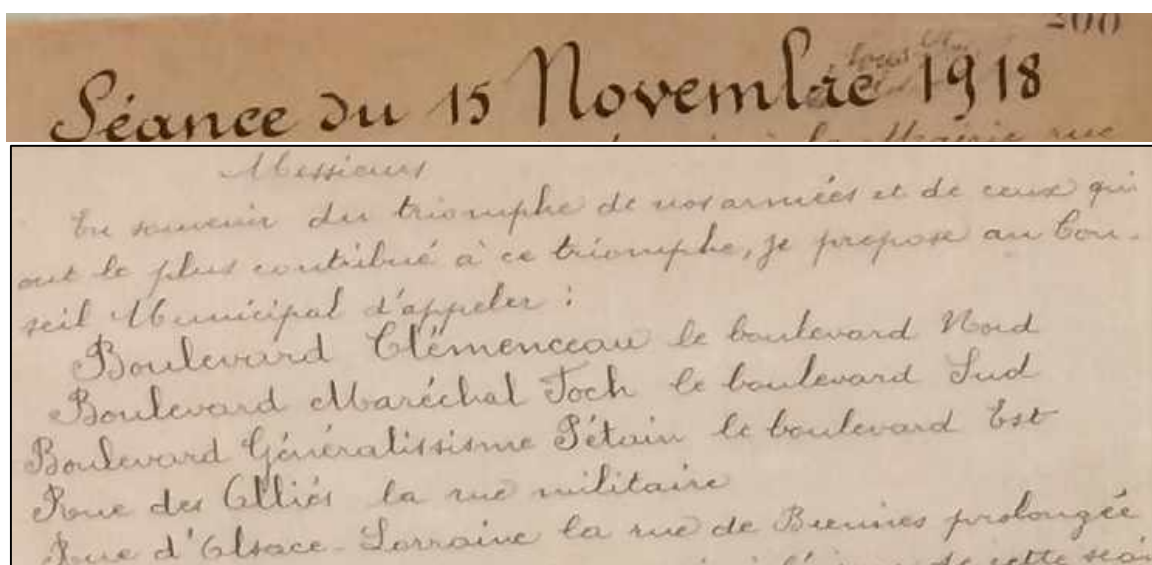 200
Séance du 15 Novembre 1918
à la Mairie rue
Messieurs
En souvenir du triomphe de nos armées et de ceux qui
ont le plus contribué à ce triomphe, je propose au Con-
seil Municipal d'appeler :
Boulevard Clémenceau le boulevard Nord
Boulevard Maréchal Foch le boulevard Sud
Boulevard Généralissime Pétain le boulevard Est
Rue des Alliés la rue militaire
Rue d'Alsace-Lorraine la rue de Biennes prolongée
de cette